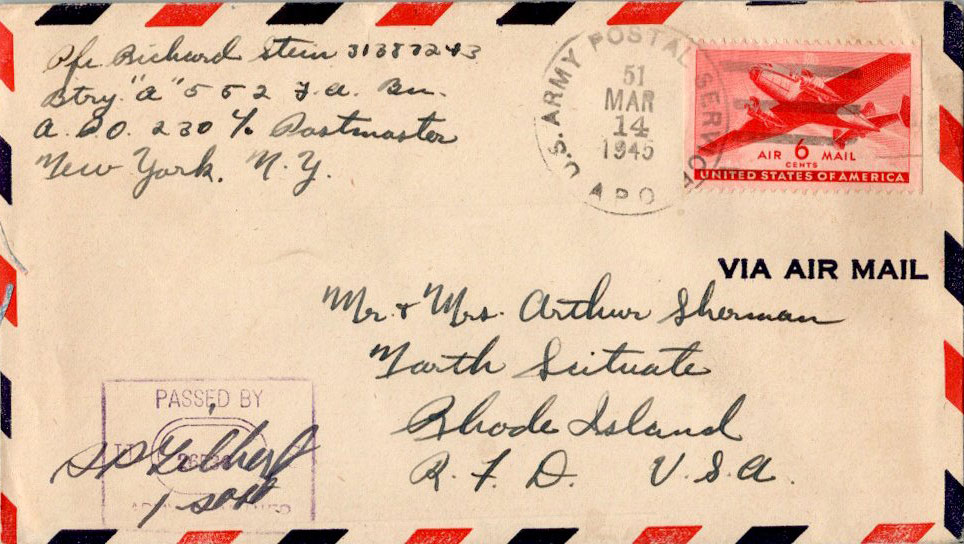 Pfc. Richard Stein 31387243
Btry. "A" 552 F.A. Bn.
A.P.O. 230 % Postmaster
New York, N.Y.
U.S. ARMY POSTAL SERVICE
51
MAR
14
1945
A.P.O.
AIR 6 MAIL
CENTS
UNITED STATES OF AMERICA
VIA AIR MAIL
Mr. & Mrs. Arthur Sherman
North Scituate
Rhode Island
R.F.D. U.S.A.
PASSED BY